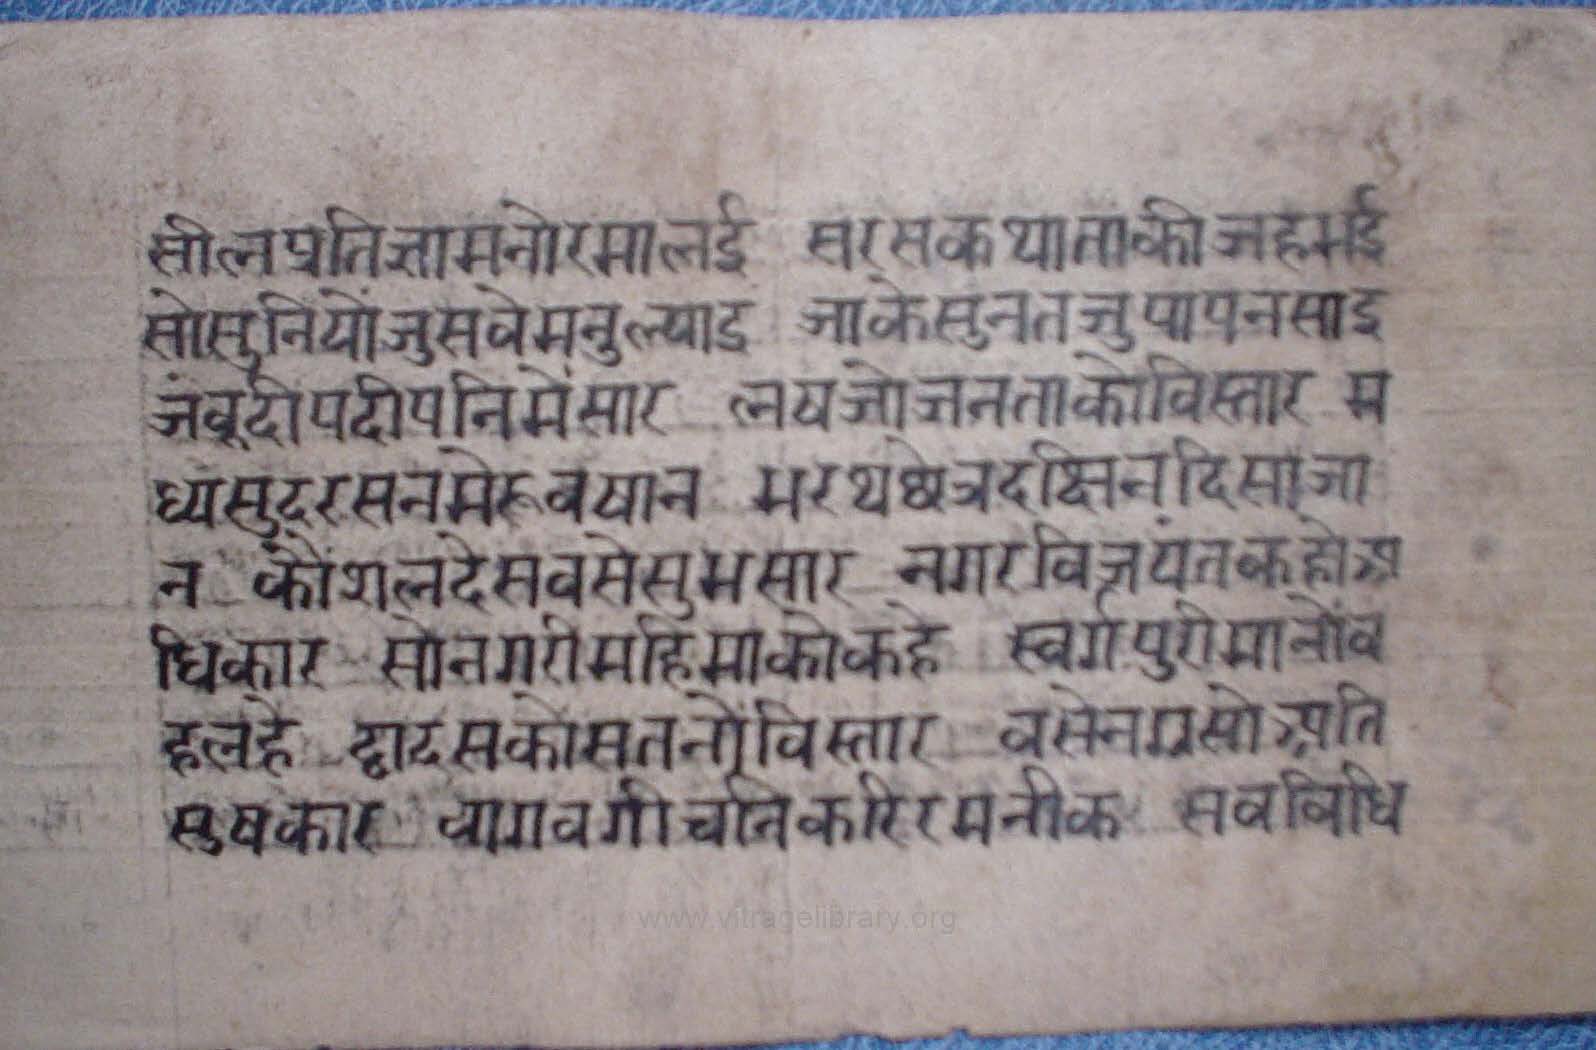 सीलप्रतिज्ञामनोरमालई सरसकथाताकीजहभई
सोसुनियोंजुसवेमनुल्याइ जाकेसुनतजुपापनसाइ
जंवूदीपदीपनिमेंसार लषजोजनताकोविस्तार म
ध्यसुदरसनमेरूवषान भरथक्षेत्रदक्षिनदिसाजा
न कौंशलदेसवसेसुभसार नगरविजयंतकहोअ
धिकार सोनगरीमहिमाकोकहे स्वर्गपुरीमानोंव
हलहे द्वादसकोसतनोंविस्तार वसेनग्रसोअति
सुषकार वागवगीचनिकरिरमनीक सवविधि
www.vitragelibrary.org